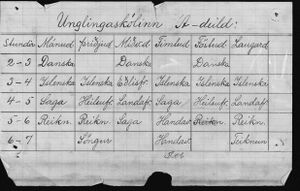 Unglingaskólinn A-deild:
Stundir Mánud Þriðjud Miðvd Fimtud Föstud Laugard
2-3 Danska Danska Danska
3-4 Íslenska Íslenska Eðlisfr. Íslenska Íslenska Íslenska
4-5 Saga Heilsuf. Landaf. Saga Heilsuf. Landaf.
5-6 Reikn. Reikn. Saga Handav. Reikn. Reikn.
6-7 Söngur Handav. Teiknun